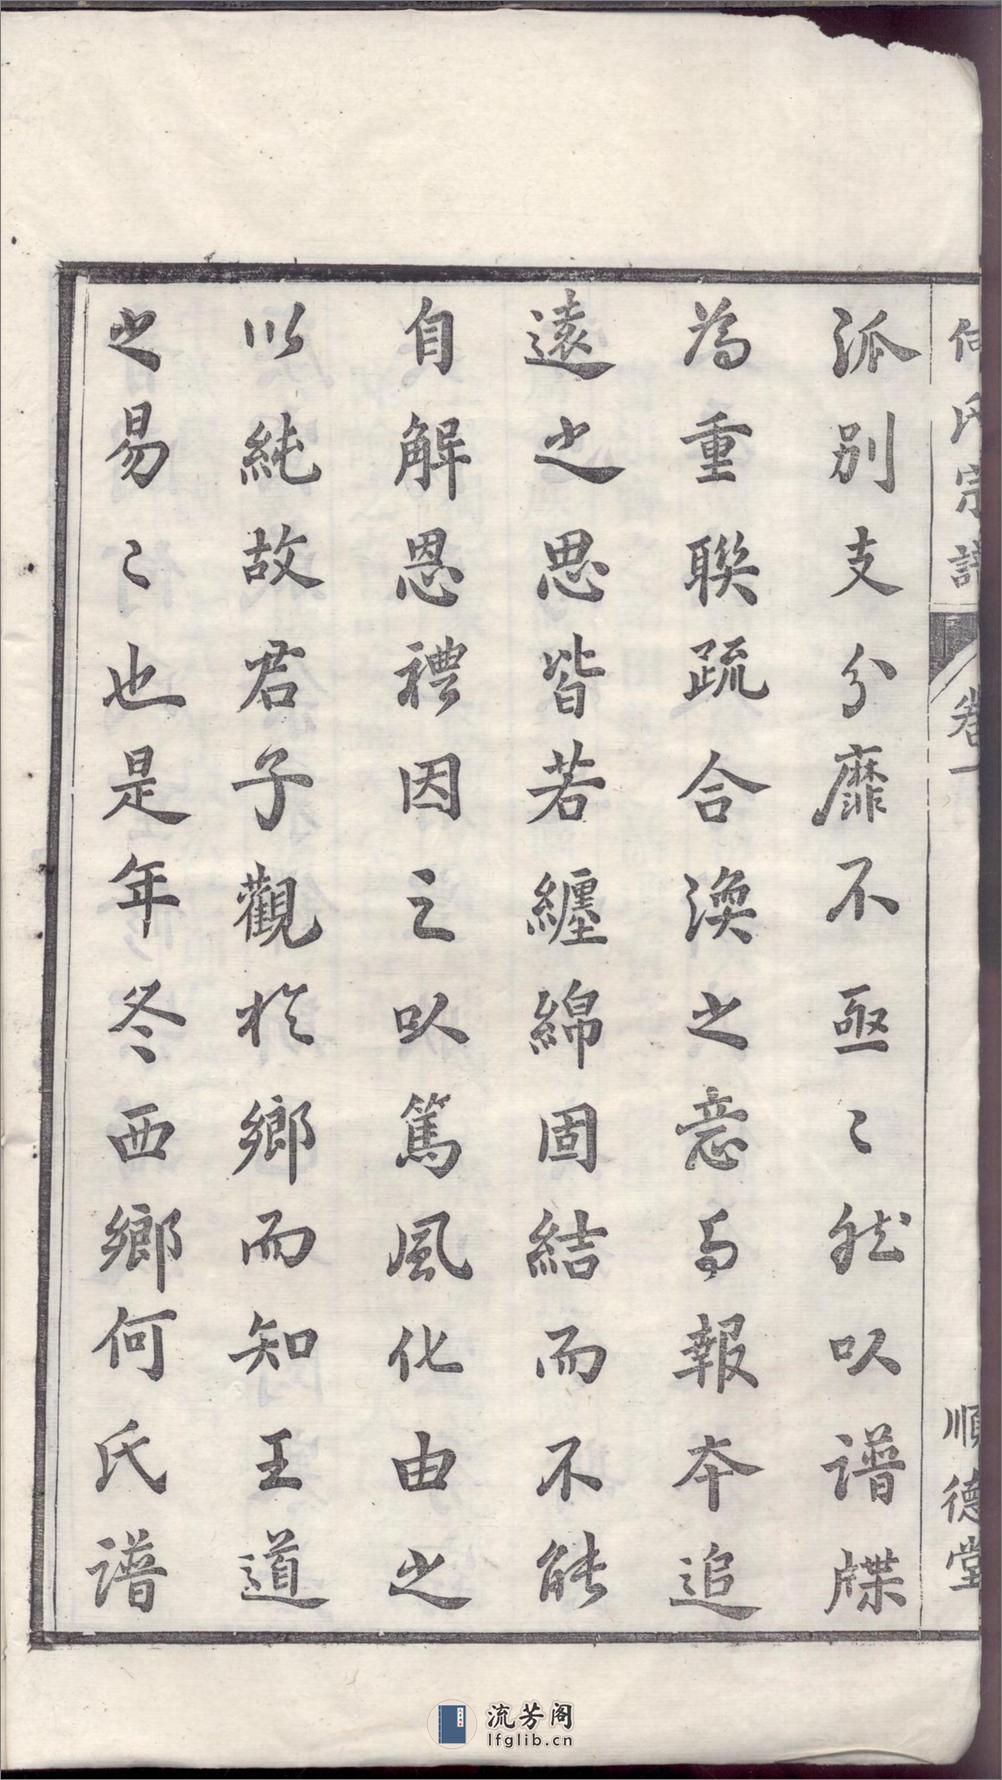 何氏宗譜 卷一 順德堂
派別支分靡不亟〻然以譜牒
為重聯疏合渙之意与報本追
遠之思皆若纏綿固結而不能
自解恩禮因之以篤風化由之
以純故君子觀於鄉而知王道
之易〻也是年冬西鄉何氏譜
流芳阁
lfglib.cn